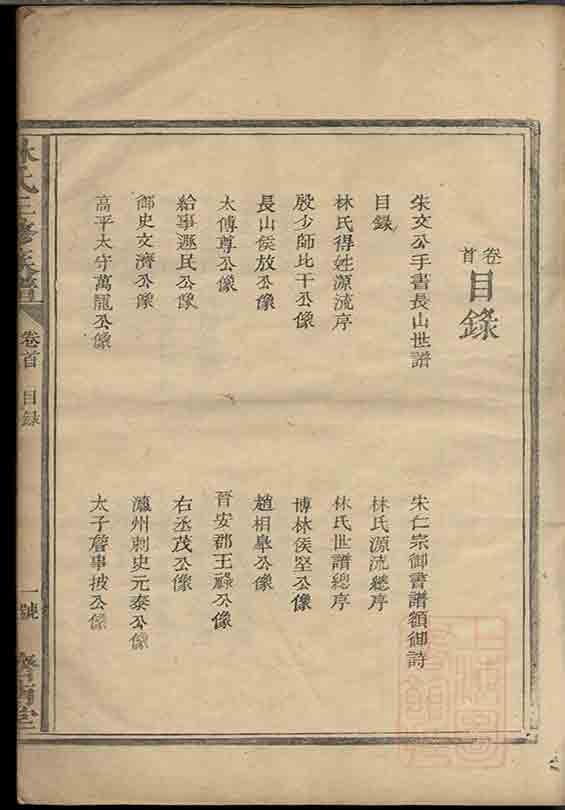 卷首
目錄
朱文公手書長山世譜
宋仁宗御書譜額御詩
目錄
林氏源流總序
林氏得姓源流序
林氏世譜總序
殷少師比干公像
博林侯堅公像
長山侯放公像
趙相皋公像
太傅尊公像
晉安郡王祿公像
給事遯民公像
右丞茂公像
御史文濟公像
瀛州刺史元泰公像
高平太守萬寵公像
太子詹事披公像
林氏三修族譜
卷首 目錄
一號